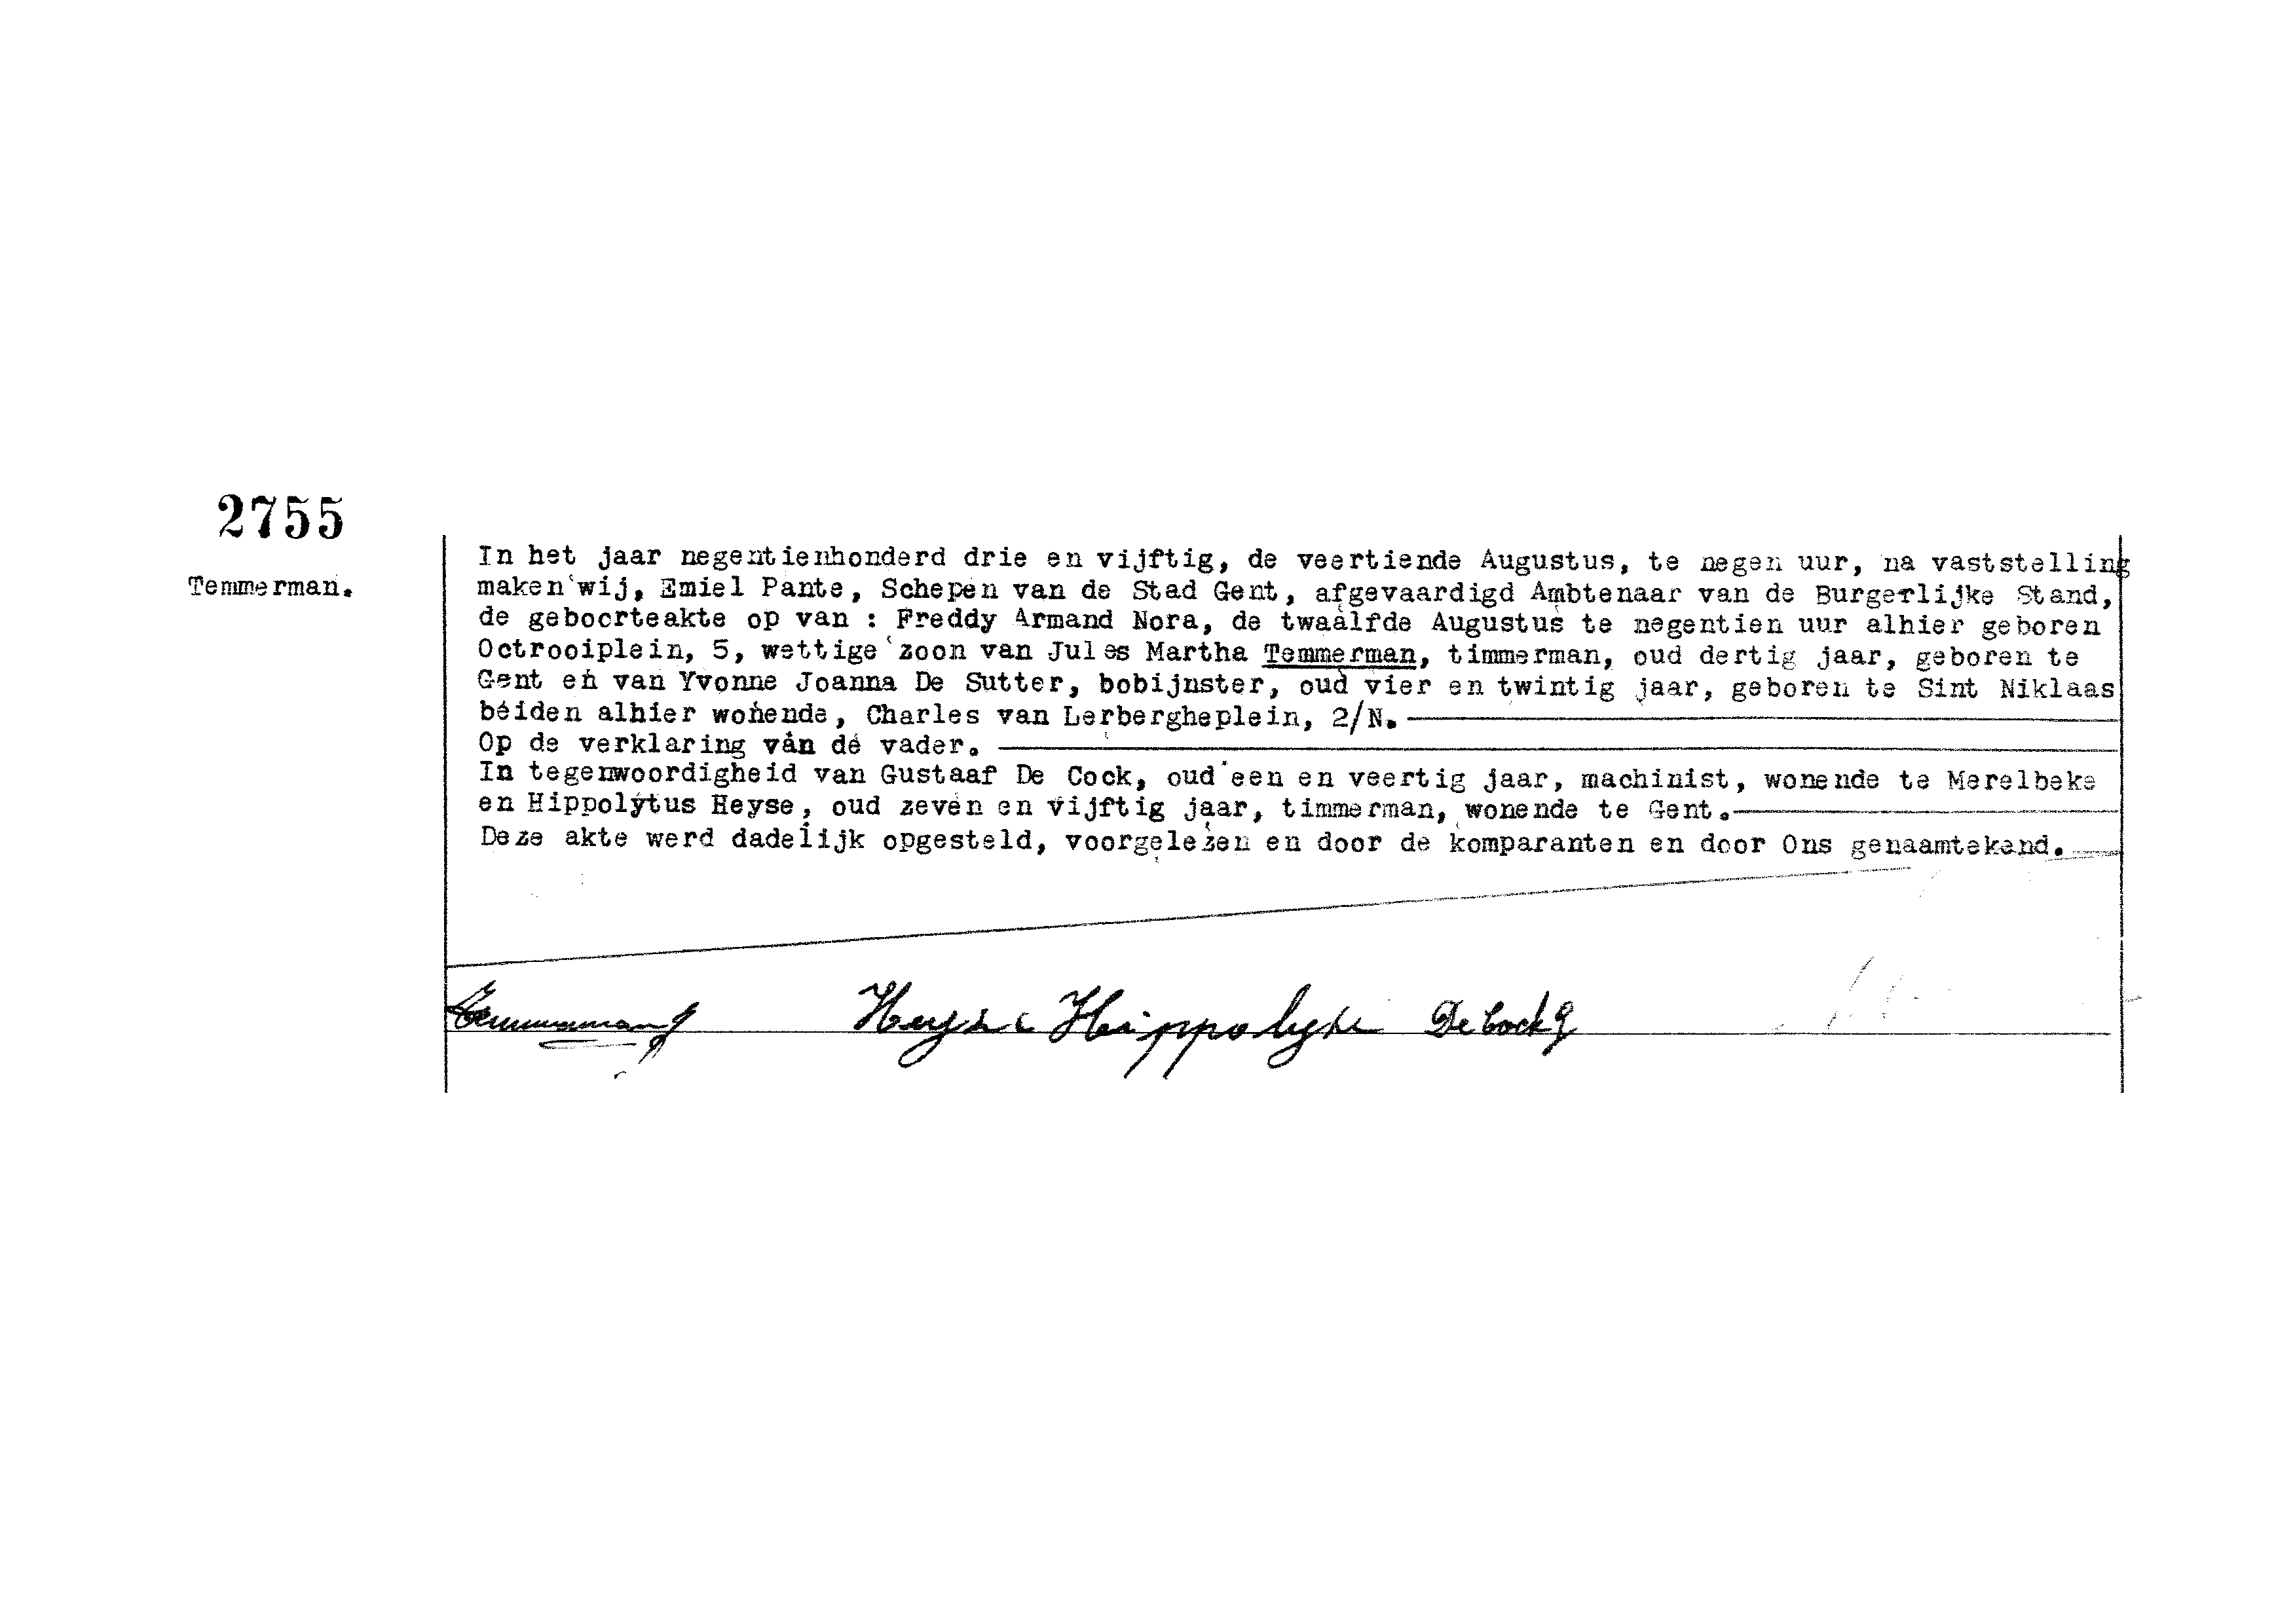 2755
Temmerman.
In het jaar negentienhonderd drie en vijftig, de veertiende Augustus, te negen uur, na vaststelling
maken wij, Emiel Pante, Schepen van de Stad Gent, afgevaardigd Ambtenaar van de Burgerlijke Stand,
de geboorteakte op van : Freddy Armand Nora, de twaalfde Augustus te negentien uur alhier geboren
Octrooiplein, 5, wettige zoon van Jules Martha Temmerman, timmerman, oud dertig jaar, geboren te
Gent en van Yvonne Joanna De Sutter, bobijnster, oud vier en twintig jaar, geboren te Sint Niklaas
beiden alhier wonende, Charles van Lerbergheplein, 2/N.
Op de verklaring van de vader.
In tegenwoordigheid van Gustaaf De Cock, oud een en veertig jaar, machinist, wonende te Merelbeke
en Hippolytus Heyse, oud zeven en vijftig jaar, timmerman, wonende te Gent.
Deze akte werd dadelijk opgesteld, voorgelezen en door de komparanten en door Ons genaamtekend.
Temmerman J Heyse Hippolyte De Cock G